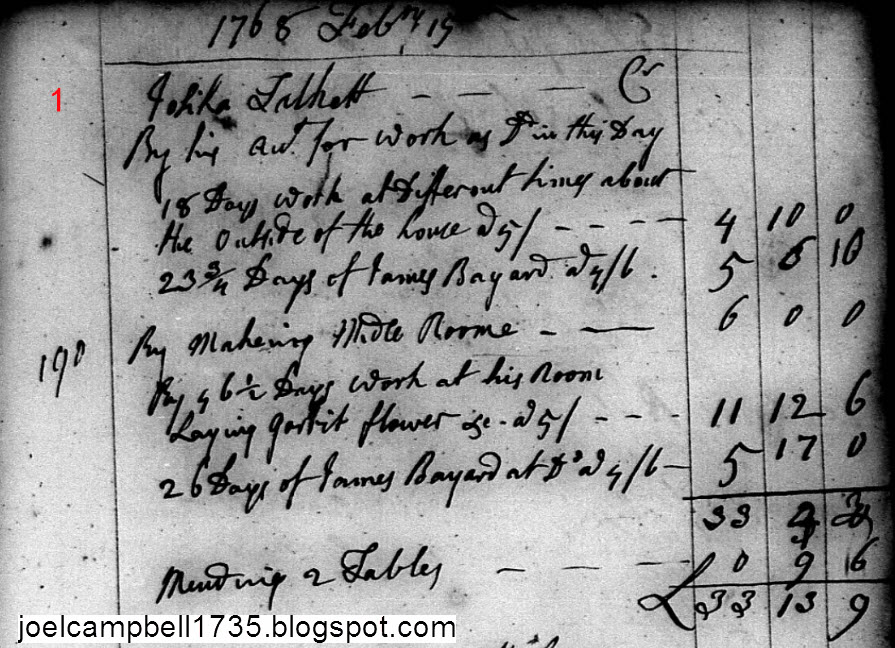 1768 Febry 15
1
Joshua Talhett — — — Cr
By his acct. for work as Dr in this Day
18 Days work at Different times about
the outside of the house a 5/ - - - - 4 10 0
23 3/4 Days of James Bayard a 4/6 . 5 6 10
By Makeing Midle Roome - — 6 0 0
190
By 46 1/2 Days work at his Room
Laying garrit flower &c - a 5/ - - - 11 12 6
26 Days of James Bayard at Do a 4/6 — 5 17 0
33
Mending 2 Tables — — — 0 9
£ 33 13 9
joelcampbell1735.blogspot.com